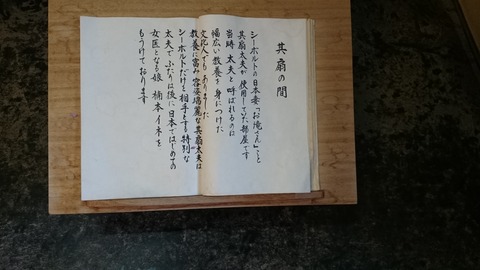 其扇の間
シーボルトの日本妻「お滝さん」こと
其扇太夫が使用していた部屋です
当時 太夫と呼ばれるのは
幅広い教養を身につけた
文化人でもありました
教養に富み容姿端麗な其扇太夫は
シーボルトだけを相手とする特別な
太夫でふたりは後に日本ではじめての
女医となる娘 楠本イネを
もうけております